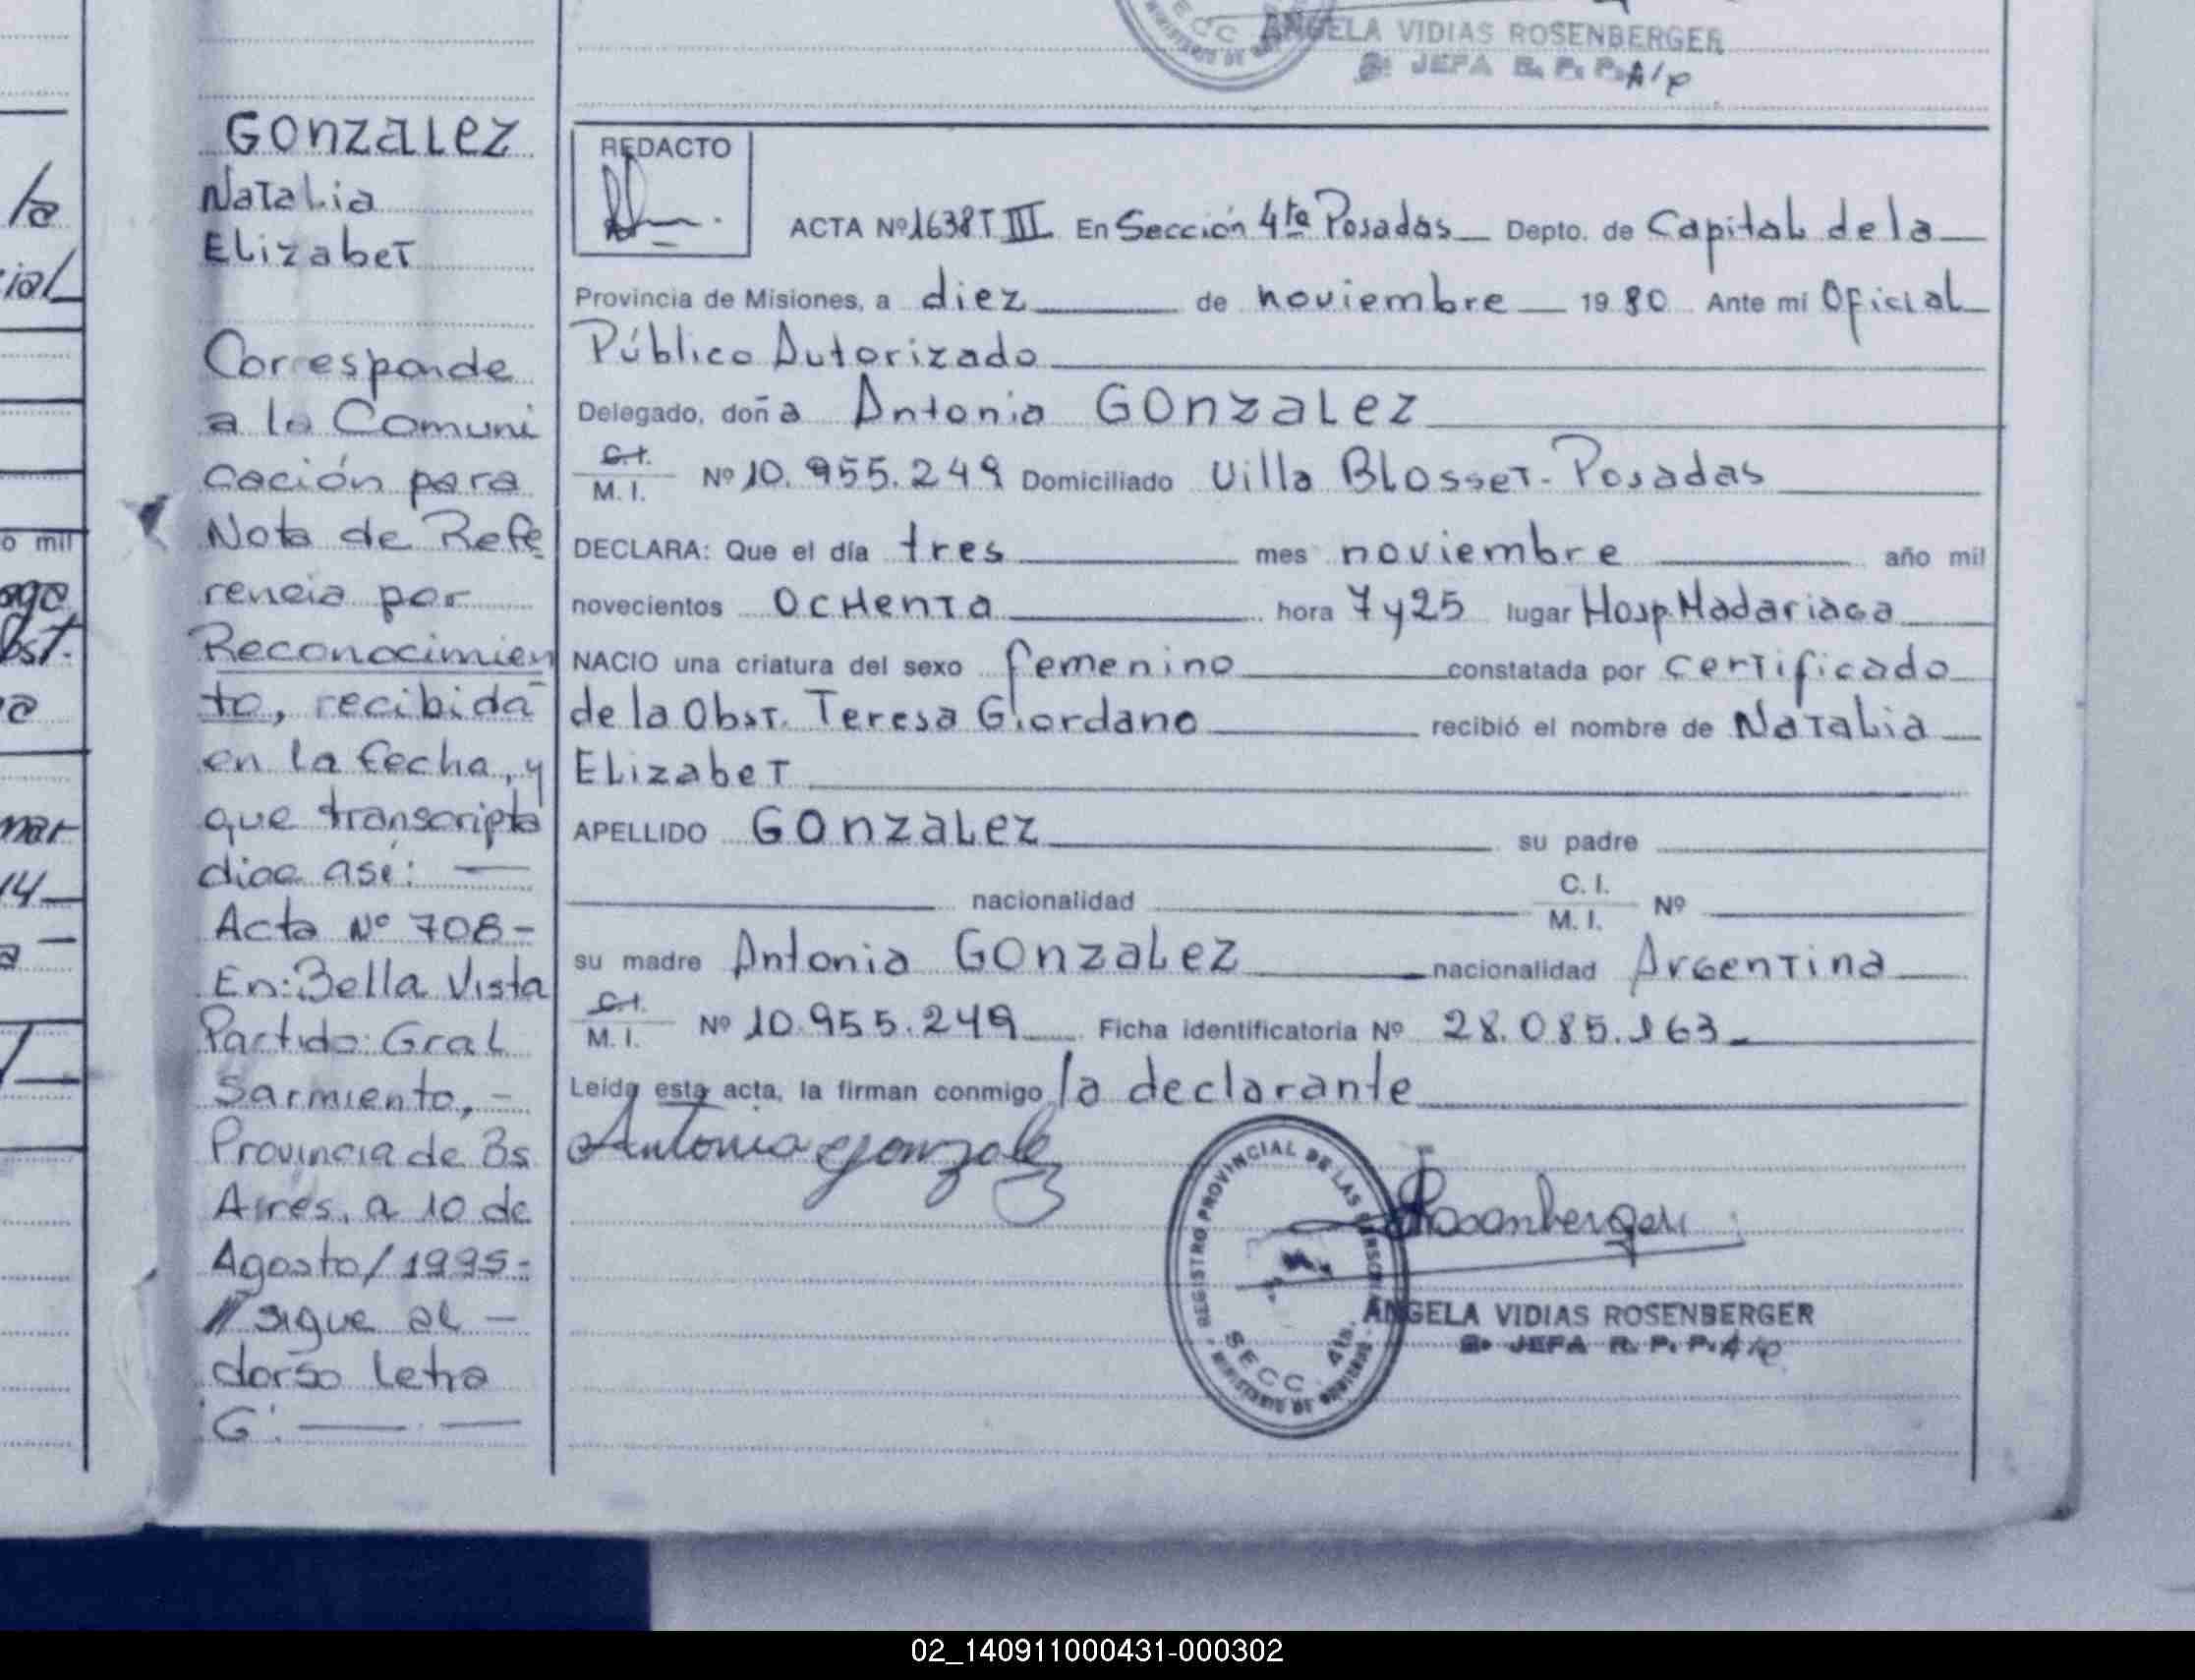 ANGELA VIDIAS ROSENBERGER
JEFA R. P. P. A/C
GONZALEZ
Natalia
Elizabet
Corresponde
a la Comuni
cación para
Nota de Refe
rencia por
Reconocimien
to, recibida
en la fecha, y
que transcripta
dice así:
Acta Nº 708-
En: Bella Vista
Partido: Gral
Sarmiento, -
Provincia de Bs
Aires, a 10 de
Agosto/1995-
// sigue al -
dorso letra
"G".
REDACTO
ACTA Nº 1638 T III En Sección 4ta Posadas Depto. de Capital de la
Provincia de Misiones, a diez de noviembre 1980 Ante mi Oficial
Público Autorizado
Delegado, doña Antonia GONZALEZ
C.I.
M. I. Nº 10.955.249 Domiciliado Villa Blosset-Posadas
DECLARA: Que el día tres mes noviembre año mil
novecientos ochenta hora 7 y 25 lugar Hosp. Madariaga
NACIO una criatura del sexo femenino constatada por certificado
de la Obst. Teresa Giordano recibió el nombre de Natalia
Elizabet
APELLIDO GONZALEZ su padre
nacionalidad C. I. M. I. Nº
su madre Antonia GONZALEZ nacionalidad Argentina
C.I.
M. I. Nº 10.955.249 Ficha identificatoria Nº 28.085.163
Leída esta acta, la firman conmigo la declarante
Antonia Gonzalez
Rosenberger
REGISTRO PROVINCIAL DE LAS PERSONAS
SECC. 4ta.
MINISTERIO DE GOBIERNO
ANGELA VIDIAS ROSENBERGER
JEFA R. P. P. A/C
02_140911000431-000302